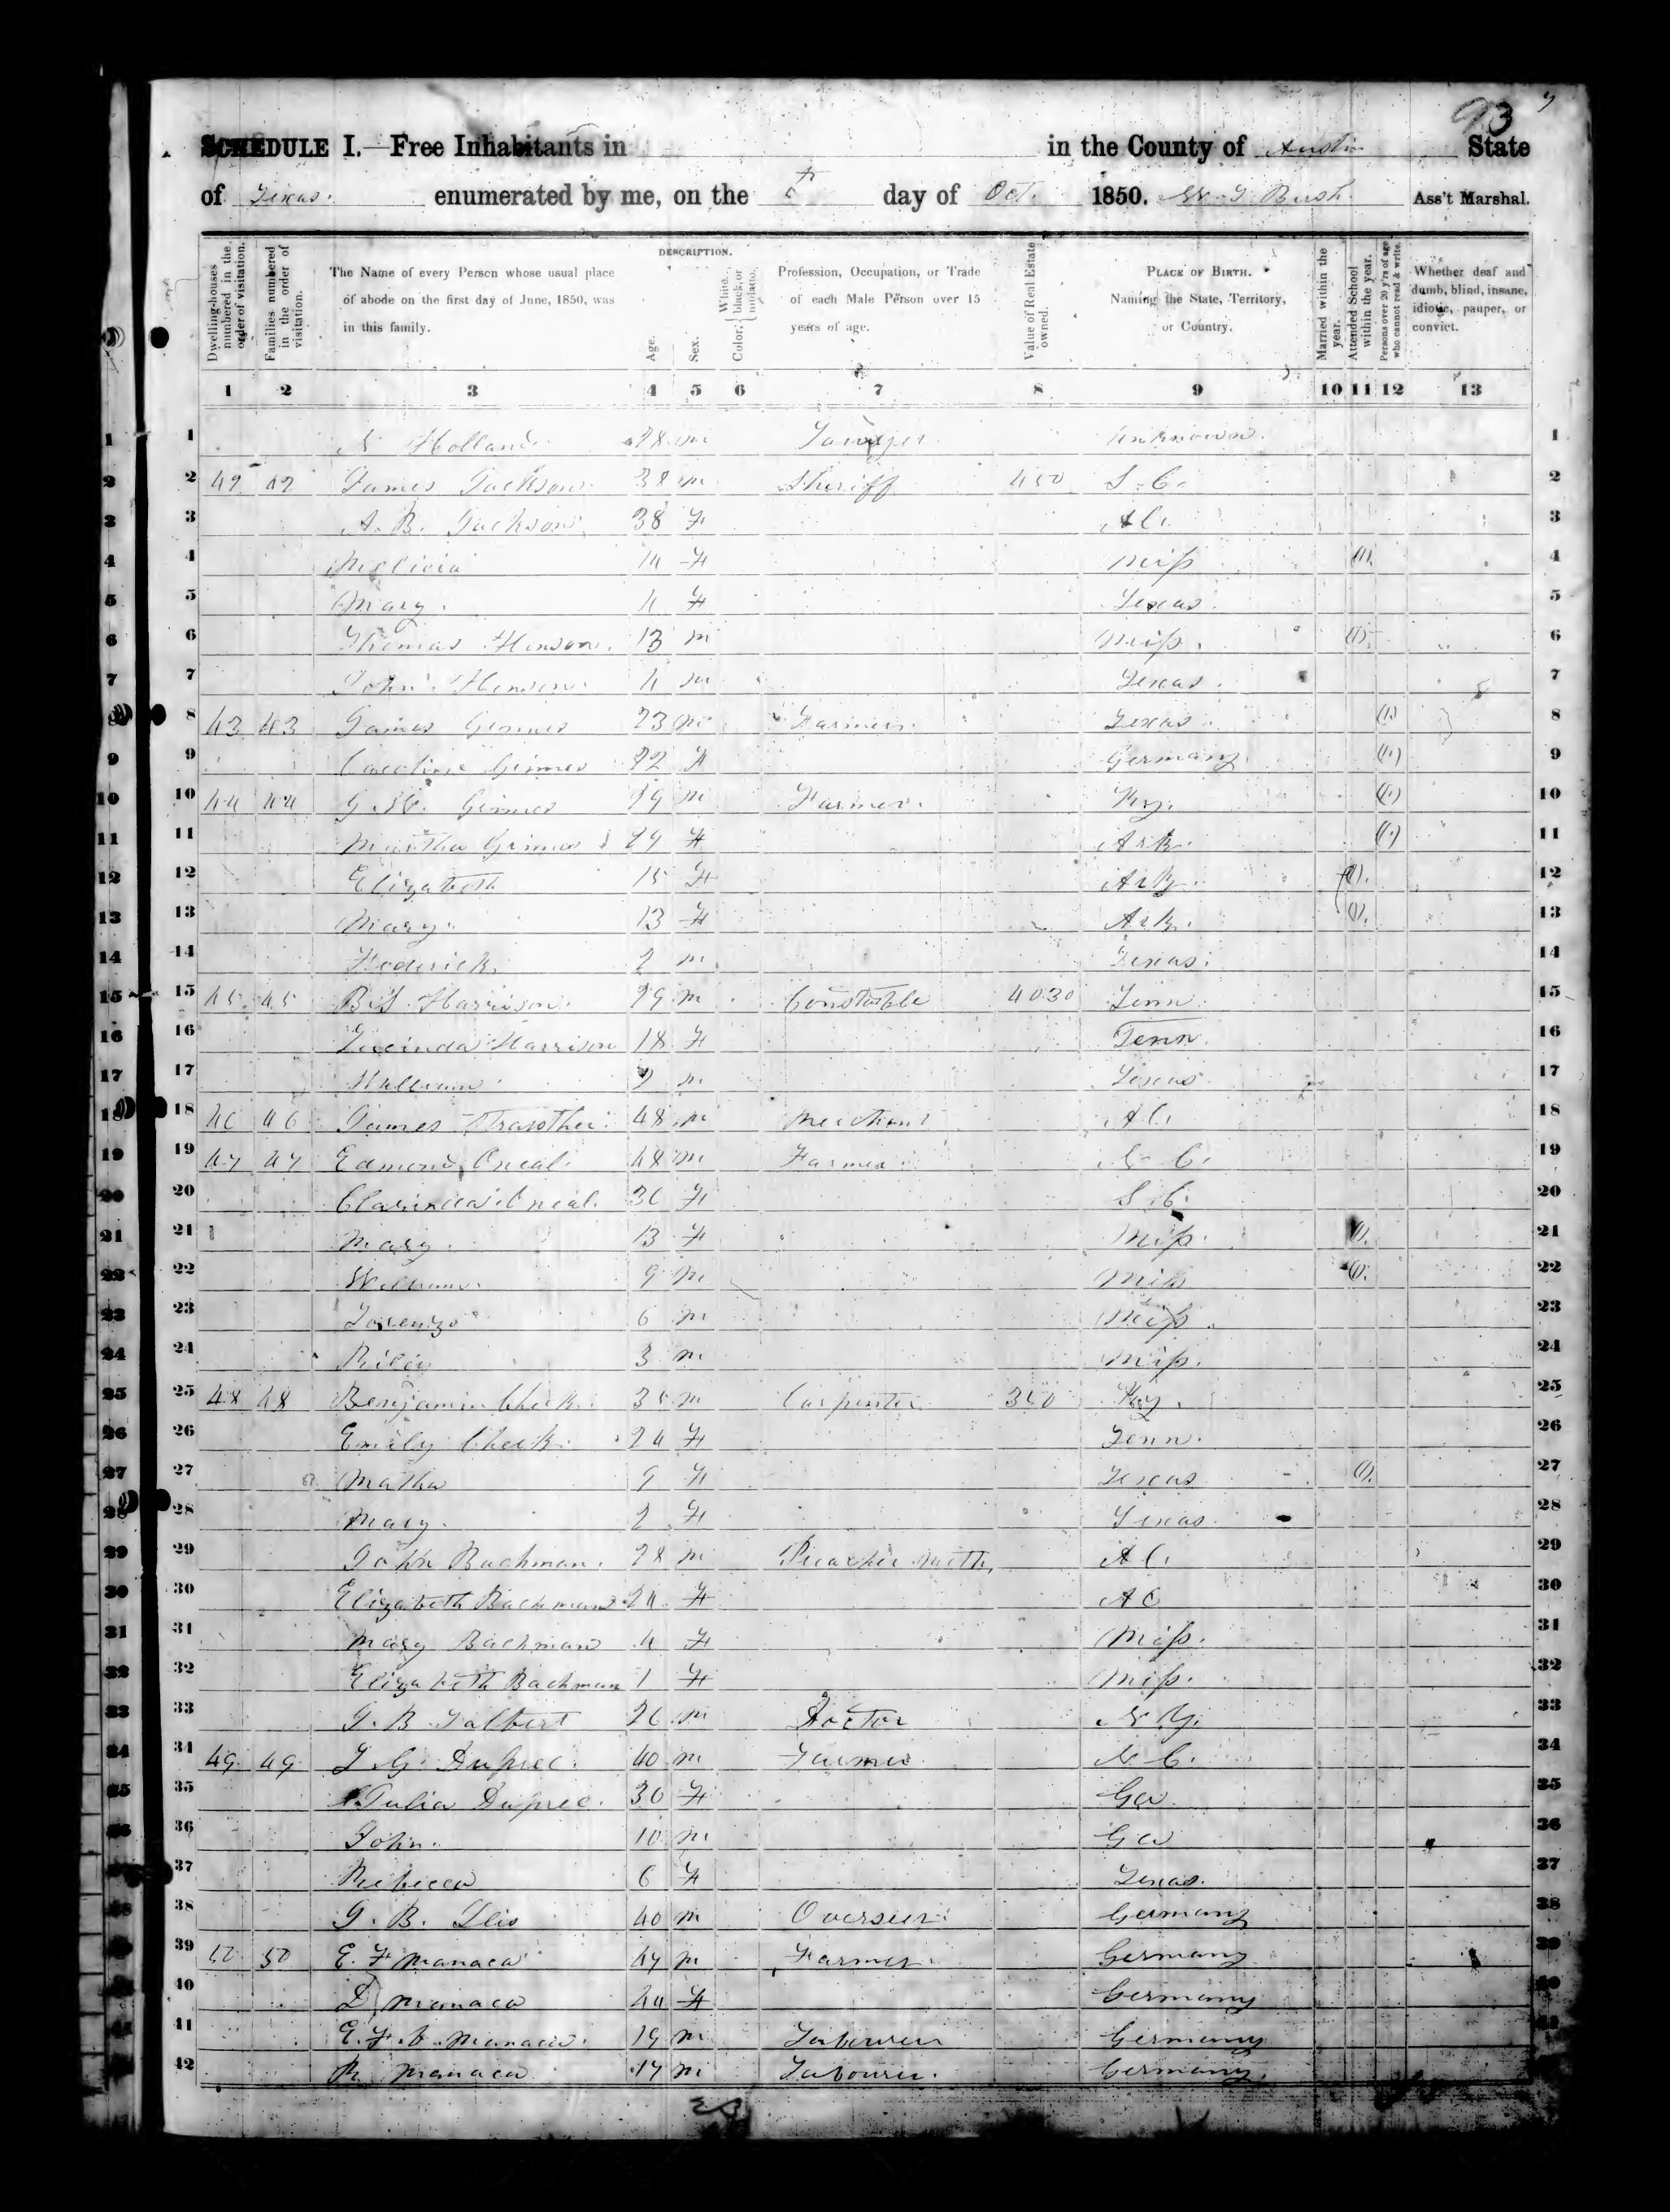 93
SCHEDULE I.—Free Inhabitants in in the County of Austin State
of Texas. enumerated by me, on the day of Oct. 1850. Bush. Ass't Marshal.
Dwelling-houses numbered in the order of visitation.
Families numbered in the order of visitation.
The Name of every Person whose usual place of abode on the first day of June, 1850, was in this family.
DESCRIPTION.
Age.
Sex.
Color, { White, black, or mulatto.
Profession, Occupation, or Trade of each Male Person over 15 years of age.
Value of Real Estate owned.
PLACE OF BIRTH. Naming the State, Territory, or Country.
Married within the year.
Attended School within the year.
Persons over 20 y'rs of age who cannot read & write.
Whether deaf and dumb, blind, insane, idiotic, pauper, or convict.
1 2 3 4 5 6 7 8 9 10 11 12 13
1 Holland 28 m Lawyer Unknown. 1
2 42 42 James Jackson 38 m Sheriff 450 S. C. 2
3 A. B. Jackson 38 F 3
4 14 F Miss (1) 4
5 Mary. 4 F Texas. 5
6 Thomas Henson. 13 m Miss. (1) 6
7 John Henson. 4 m Texas. 7
8 43 43 James Grimes 23 m Farmer. Texas (1) 8
9 Caroline Grimes 22 F Germany. (1) 9
10 44 44 G. W. Grimes 29 m Farmer. Ky. (1) 10
11 Martha Grimes 29 F Ark. (1) 11
12 Elizabeth 15 F Ark. (1) 12
13 Mary. 13 F Ark. (1) 13
14 Frederick. 2 m Texas. 14
15 45 45 Harrison. 29 m Constable 4030 Tenn 15
16 Lucinda Harrison 18 F Tenn. 16
17 William 2 m Texas. 17
18 46 46 James Strawther 48 m Merchant 18
19 47 47 Edmond Oneal. 48 m Farmer. 19
20 Clarinda Oneal. 36 F S. C. 20
21 Mary. 13 F Miss. (1) 21
22 William. 9 m Miss (1) 22
23 Lorenzo 6 m Miss. 23
24 3 m Miss. 24
25 48 48 Benjamin Cheek. 35 m Carpenter 350 Ky. 25
26 Emily Cheek. 24 F Tenn. 26
27 Matha 9 F Texas (1) 27
28 Mary. 2 F Texas. 28
29 John Bachman. 28 m Preacher Meth. 29
30 Elizabeth Bachman 24 F 30
31 Mary Bachman 4 F Miss. 31
32 Elizabeth Bachman 1 F Miss. 32
33 Talbert 26 m Doctor N. Y. 33
34 49 49 L. G. Dupree. 40 m Farmer N. C. 34
35 Julia Dupree. 30 F Ga 35
36 John. 10 m Ga 36
37 Rebecca 6 F Texas. 37
38 40 m Overseer. Germany 38
39 50 50 E. F Manaca 47 m Farmer. Germany 39
40 Manaca 44 F Germany 40
41 Manaca. 19 m Labourer Germany 41
42 Manaca 17 m Labourer. Germany.